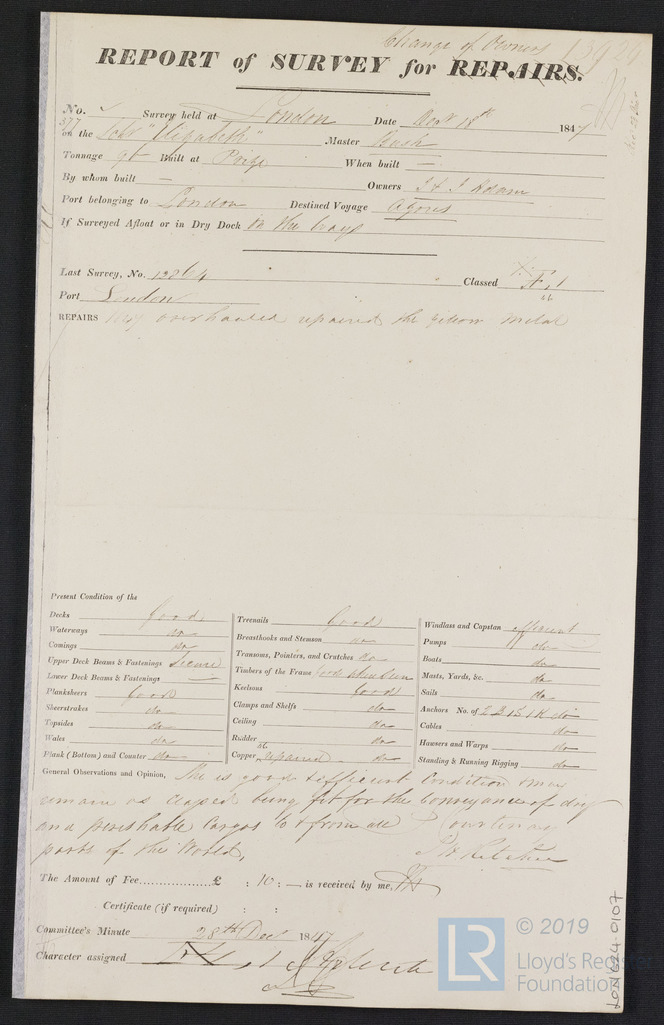 Change of Owners
REPORT of SURVEY for REPAIRS.
No. Survey held at London Date 18th 1847
377
on the Schr "Elizabeth" Master
Tonnage Built at When built —
By whom built — Owners J & J Adam
Port belonging to London Destined Voyage Azores
If Surveyed Afloat or in Dry Dock in the
Last Survey, No. Classed
Port London
REPAIRS overhauled repaired the yellow metal
Present Condition of the
Decks Good
Waterways do
Comings do
Upper Deck Beams & Fastenings Secure
Lower Deck Beams & Fastenings —
Planksheers Good
Sheerstrakes do
Topsides do
Wales do
Plank (Bottom) and Counter do
Treenails Good
Breasthooks and Stemson do
Transoms, Pointers, and Crutches do
Timbers of the Frame Good when seen
Keelsons Good
Clamps and Shelfs do
Ceiling do
Rudder do
Copper, repaired do
Windlass and Capstan efficient
Pumps do
Boats do
Masts, Yards, &c. do
Sails do
Anchors No. of 2 B 1 S 1 K do
Cables do
Hawsers and Warps do
Standing & Running Rigging do
General Observations and Opinion, She is good & efficient Condition & may
remain as classed being fit for the conveyance of dry
and perishable Cargos to & from all Courtenay
ports of the World,
The Amount of Fee................. £ : 10 : — is received by me,
Certificate (if required) : :
Committee's Minute 28th Decr 1847
Character assigned
LON624-0107
LR
© 2019
Lloyd's Register
Foundation